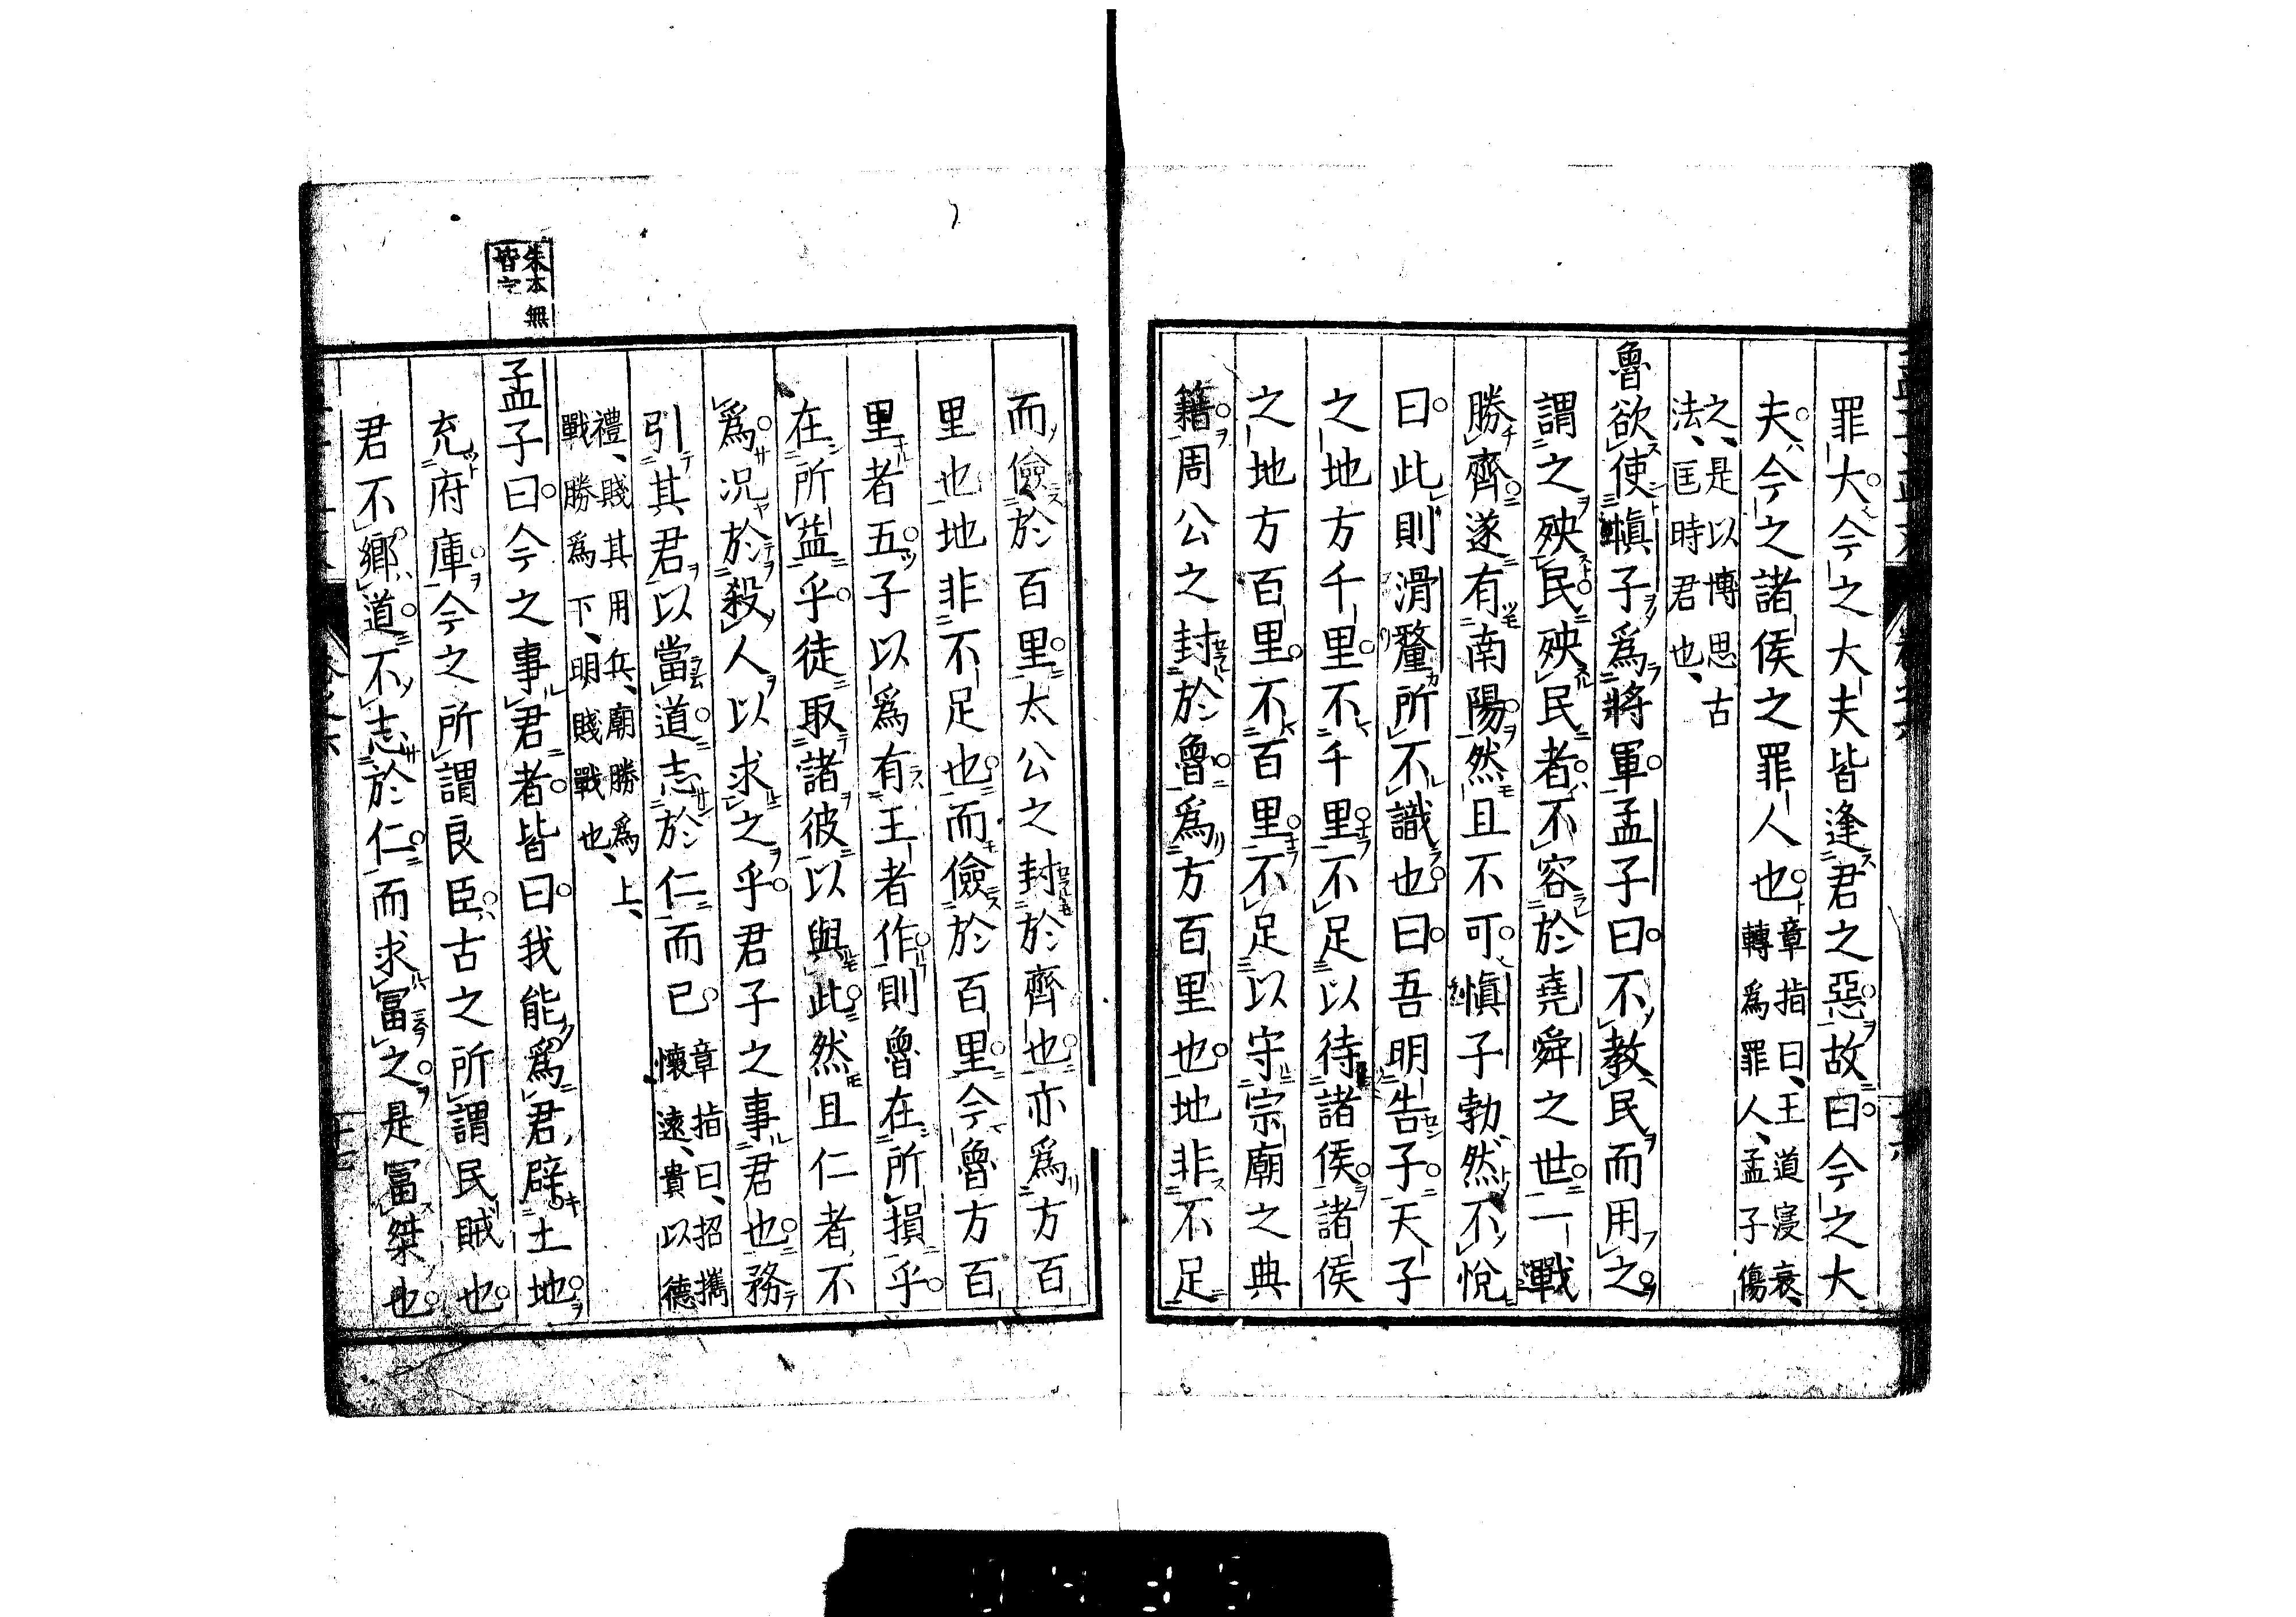 罪大今之大夫皆逢君之惡故曰今之大
夫今之諸侯之罪人也章指曰、王道寖衰、
轉爲罪人、孟子傷
之、是以博思古
法、匡時君也、
魯欲使愼子爲將軍孟子曰不教民而用之
謂之殃民殃民者不容於堯舜之世一戰
勝齊遂有南陽然且不可愼子勃然不悅
曰此則滑釐所不識也曰吾明告子天子
之地方千里不千里不足以待諸侯諸侯
之地方百里不百里不足以守宗廟之典
籍周公之封於魯爲方百里也地非不足
而儉於百里太公之封於齊也亦爲方百
里也地非不足也而儉於百里今魯方百
里者五子以爲有王者作則魯在所損乎
在所益乎徒取諸彼以與此然且仁者不
爲况於殺人以求之乎君子之事君也務
引其君以當道志於仁而已章指曰、招攜
懷遠、貴以德
禮、賤其用兵、廟勝爲上、
戰勝爲下、明賤戰也、
朱本無
皆字
孟子曰今之事君者皆曰我能爲君辟土地
充府庫今之所謂良臣古之所謂民賊也
君不鄉道不志於仁而求富之是富桀也